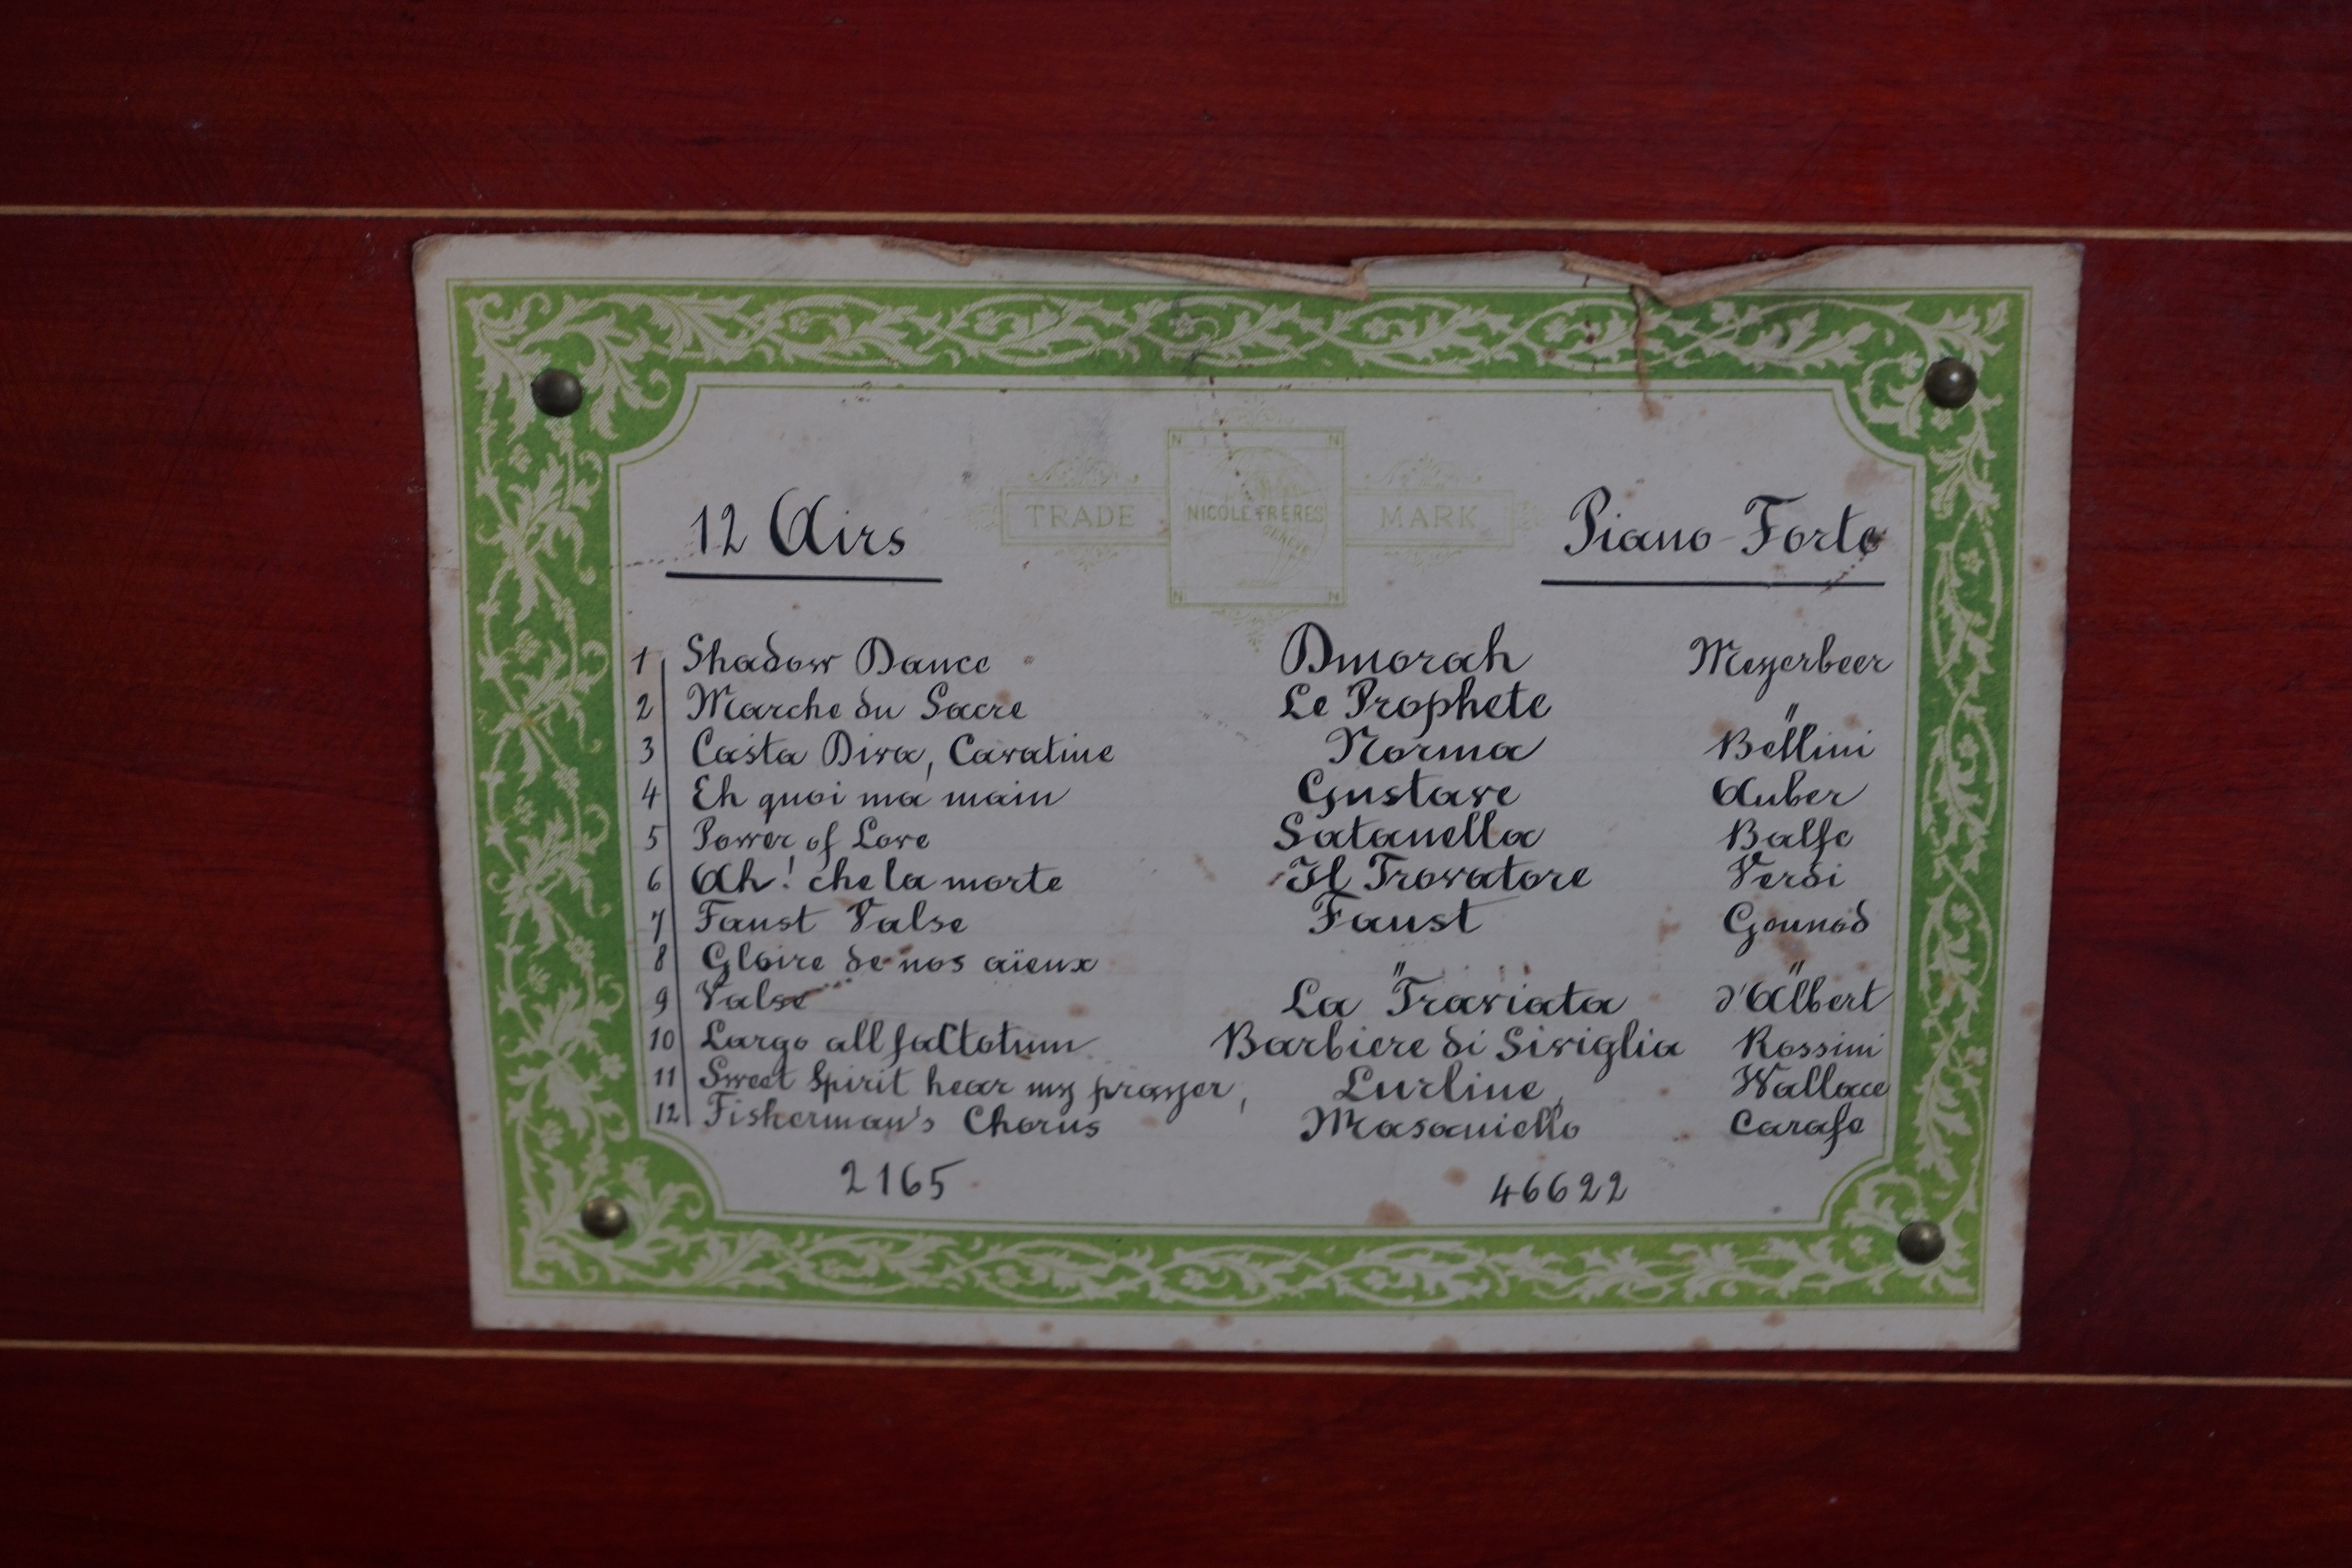 N N
TRADE NICOLE FRERES MARK
GENEVE
N N
12 Airs Piano-Forte
1 Shadow Dance Dinorah Meyerbeer
2 Marche du Sacre Le Prophete "
3 Casta Diva, Cavatine Norma Bellini
4 Eh quoi ma main Gustave Auber
5 Power of Love Satanella Balfe
6 Ah! che la morte Il Trovatore Verdi
7 Faust Valse Faust Gounod
8 Gloire de nos aïeux " "
9 Valse La Traviata d'Albert
10 Largo all factotum Barbiere di Siviglia Rossini
11 Sweet Spirit hear my prayer, Lurline, Wallace
12 Fisherman's Chorus Masaniello Carafe
2165 46622